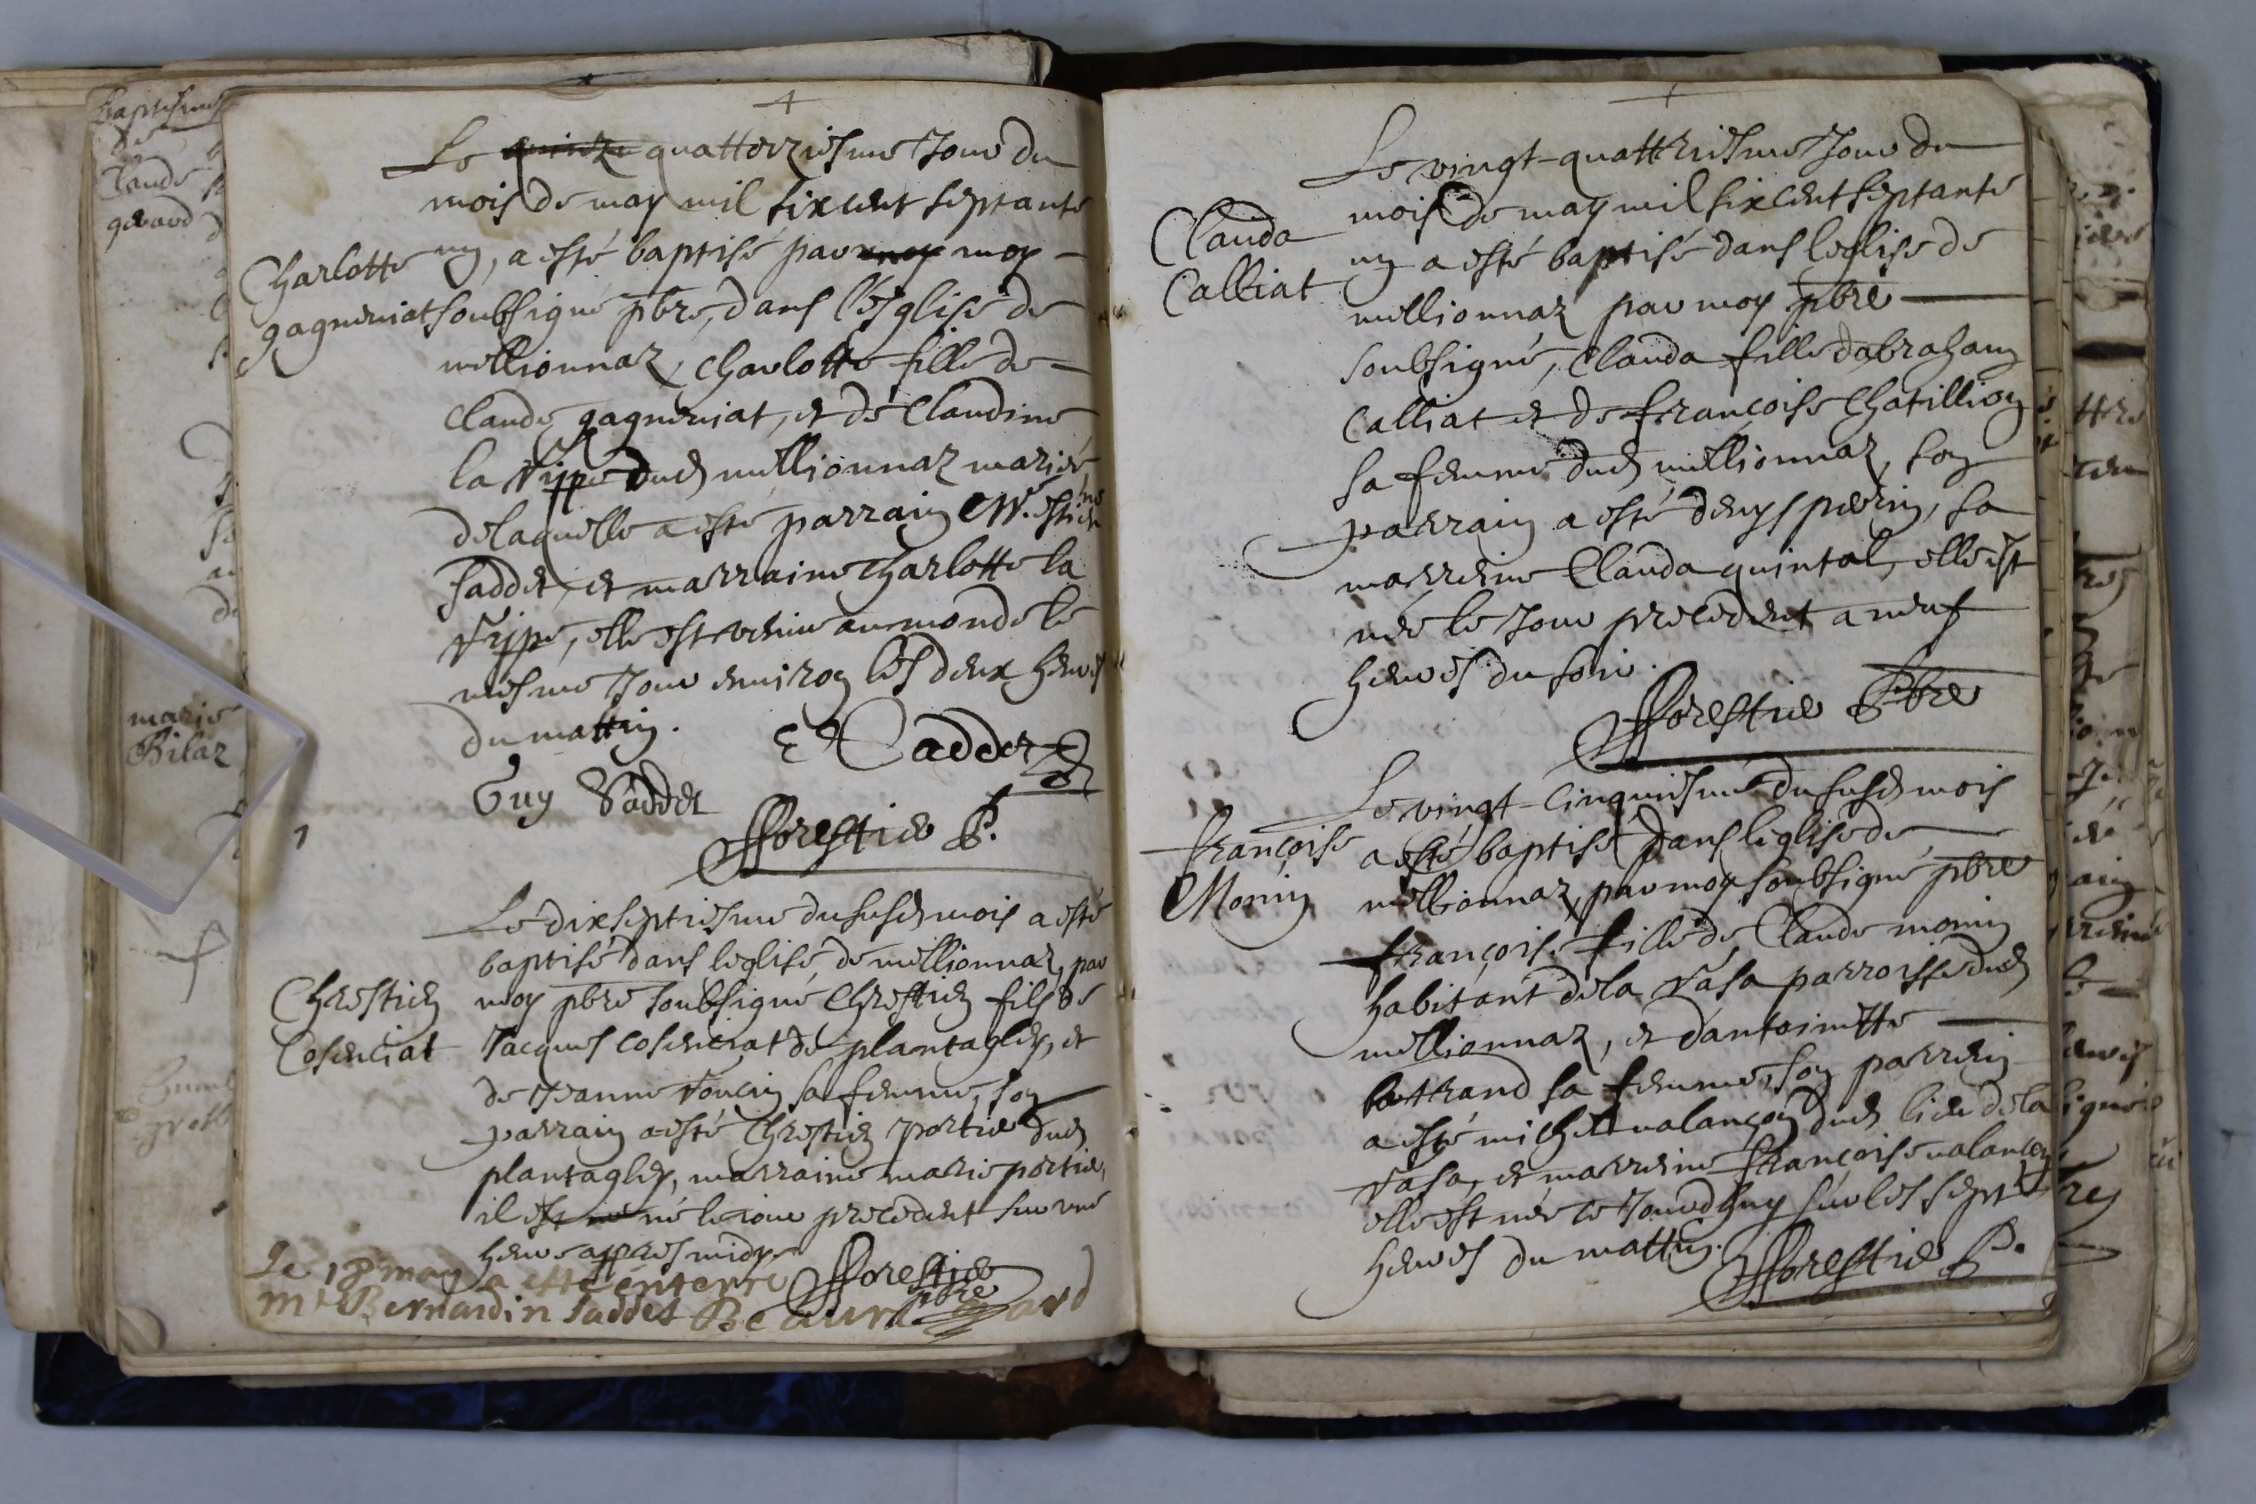 Le quinze quatterziesme Jour du
mois de may mil sixcent septante
Charlotte gagneniat
un, a esté baptisé par moy moy
soubsigné pbre, dans l'esglise de
millionnaz, charlotte fille de
Claude gagneniat, et de Claudine
la Vype dud millionnaz mariés
de laquelle a esté parrain Mr. estienne
Saddet, et marraine Charlotte la
Vype, elle est venue au monde le
mesme Jour environ les deux heures
du mattin.
E Saddet
Guy Saddet
fforestier P.
Le dixseptiesme du susd mois a esté
baptisé dans leglise de millionnaz, par
Chrestien Cosenciat
moy pbre soubsigné Chrestien fils de
Jacques cosenciat de plantagley, et
de Jeanne voucin sa femme, son
parrain a esté Chrestien portier dud
plantagley, marraine marie portier,
il est né né le jour precedent sur une
heure appres midy
fforestier pbre
Le 18 may a esté enterré
Mr Bernardin Saddet Beauregard
Le vingt-quattriesme Jour du
Clauda Calliat
mois de may mil sixcent septante
un a esté baptisé dans leglise de
millionnaz par moy pbre
soubsigné, Clauda fille dabraham
Calliat et de françoise Chatillion
sa femme dud millionnaz, son
parrain a esté denys perrin, sa
marreine Clauda quintal, elle est
née le Jour precedent a neuf
heures du soir.
fforestier Pbre
Le vingt-cinquiesme du susd mois
françoise Monin
a esté baptisé dans leglise de
millionnaz, par moy soubsigné pbre
françoise fille de Claude monin
habitant de la Vasa parroisse dud
millionnaz, et dantoinette
bertrand sa femme, son parrein
a esté michel valançon dud lieu de la
Vasa, et marreine françoise valançon
elle est née ce Jourdhuy sur les sept
heures du mattin.
fforestier P.
Baptismes
de
Claude
gerard
marie
Bilaz